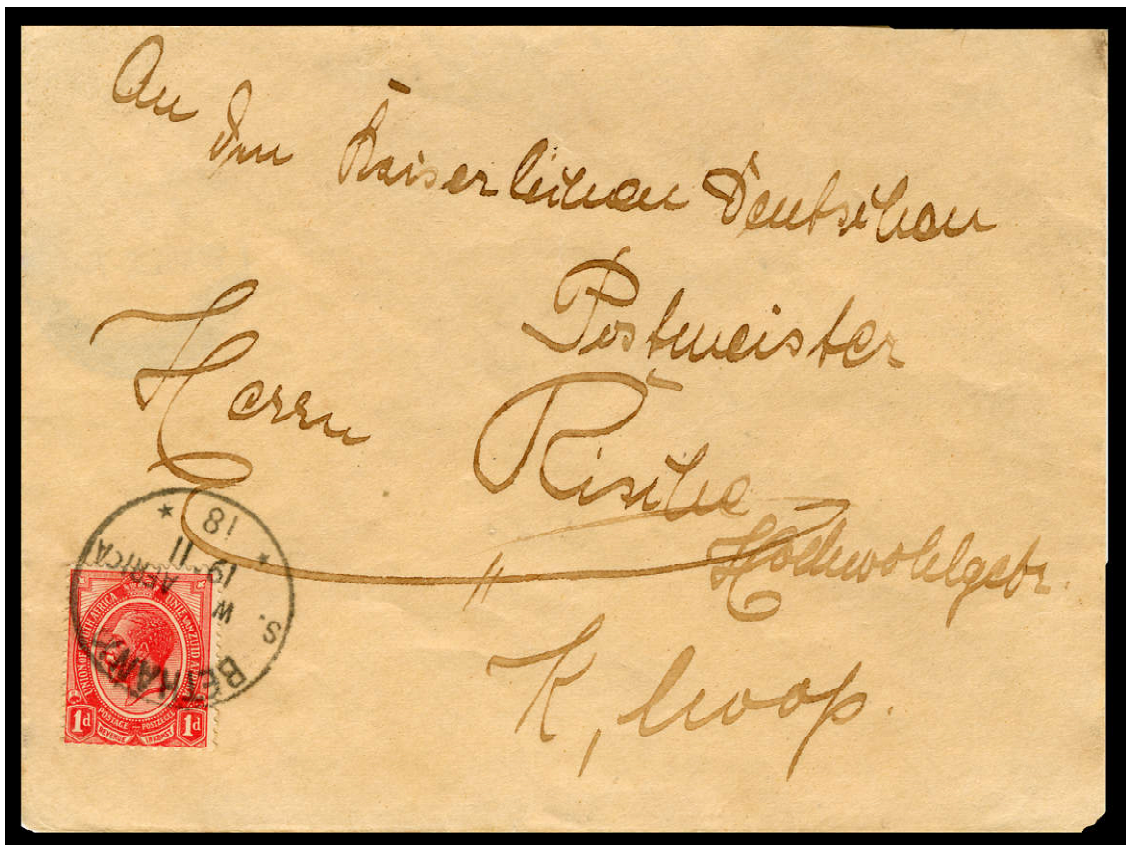 An
den Kaiserlichen Deutschen
Postmeister
Herrn Rische
Hochwohlgebr.
K, hoop.
BETHANY
S. W. AFRICA
19 11
18
UNION OF SOUTH AFRICA
UNIE VAN ZUID AFRIKA
POSTAGE — POSTZEGEL
REVENUE INKOMST
1d 1d